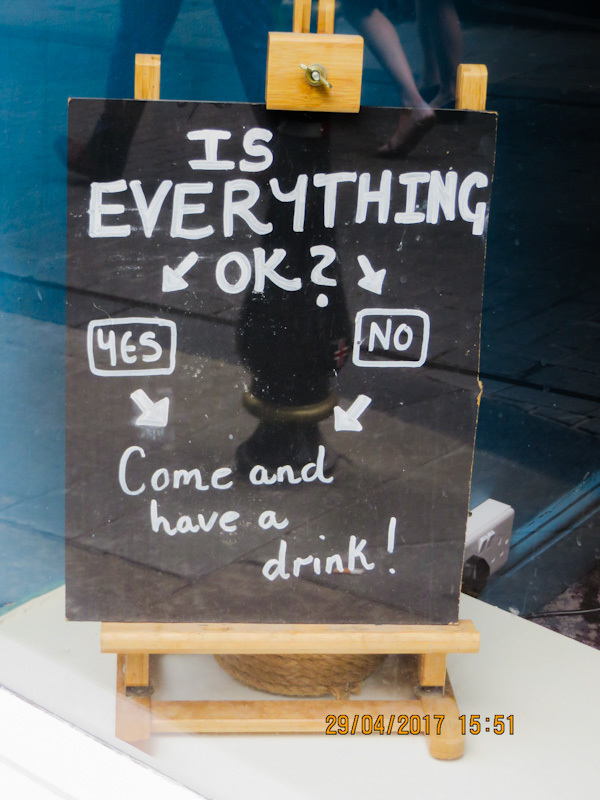 IS
EVERYTHING
OK?
YES NO
Come and
have a
drink!
29/04/2017 15:51